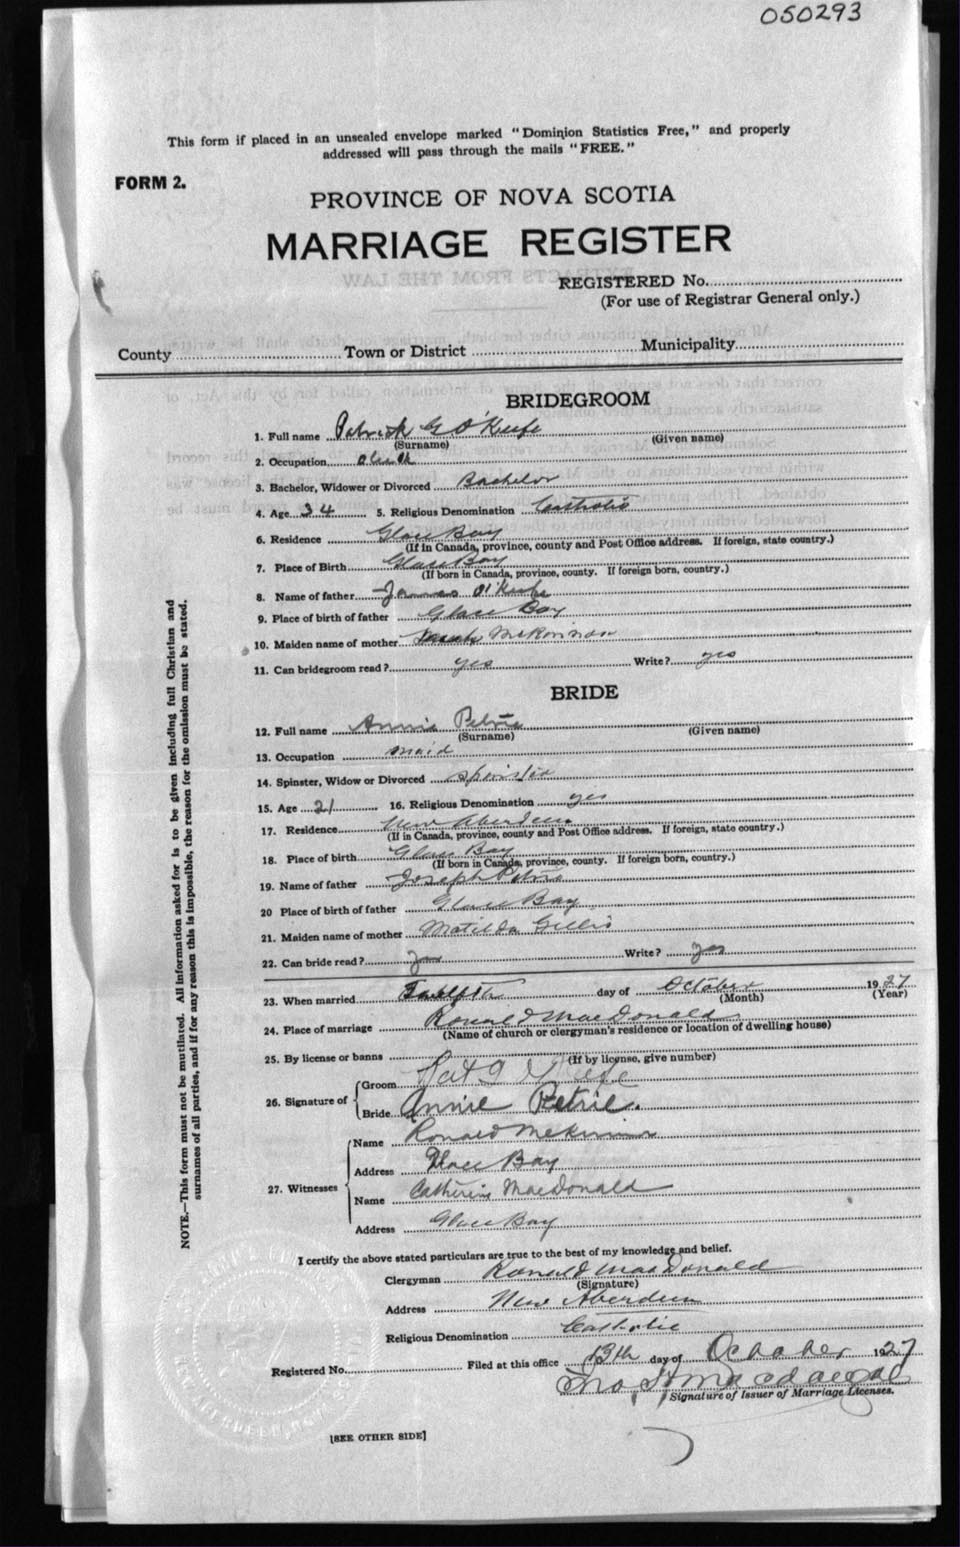 050293
This form if placed in an unsealed envelope marked "Dominion Statistics Free," and properly
addressed will pass through the mails "FREE."
FORM 2.
PROVINCE OF NOVA SCOTIA
MARRIAGE REGISTER
REGISTERED No.
(For use of Registrar General only.)
County Town or District Municipality
BRIDEGROOM
1. Full name Patrick G O'Keefe
(Surname) (Given name)
2. Occupation
3. Bachelor, Widower or Divorced Bachelor
4. Age 34 5. Religious Denomination Catholic
6. Residence Glace Bay
(If in Canada, province, county and Post Office address. If foreign, state country.)
7. Place of Birth Glace Bay
(If born in Canada, province, county. If foreign born, country.)
8. Name of father James O'Keefe
9. Place of birth of father Glace Bay
10. Maiden name of mother Sarah McKinnon
11. Can bridegroom read? yes Write? yes
BRIDE
12. Full name Annie Petrie
(Surname) (Given name)
13. Occupation maid
14. Spinster, Widow or Divorced Spinster
15. Age 21 16. Religious Denomination yes
17. Residence New Aberdeen
(If in Canada, province, county and Post Office address. If foreign, state country.)
18. Place of birth Glace Bay
(If born in Canada, province, county. If foreign born, country.)
19. Name of father Joseph Petrie
20 Place of birth of father Glace Bay
21. Maiden name of mother Matilda Gillis
22. Can bride read? yes Write? yes
23. When married Twelfth day of October 1927
(Month) (Year)
24. Place of marriage Ronald MacDonald
(Name of church or clergyman's residence or location of dwelling house)
25. By license or banns
(If by license, give number)
26. Signature of Groom Pat G O'Keefe
Bride Annie Petrie.
27. Witnesses Name Ronald McKinnon
Address Glace Bay
Name Catherine MacDonald
Address Glace Bay
I certify the above stated particulars are true to the best of my knowledge and belief.
Clergyman Ronald MacDonald
(Signature)
Address New Aberdeen
Religious Denomination Catholic
Registered No. Filed at this office 13th day of October 1927
Signature of Issuer of Marriage Licenses.
[SEE OTHER SIDE]
NOTE.—This form must not be mutilated. All information asked for is to be given including full Christian and
surnames of all parties, and if for any reason this is impossible, the reason for the omission must be stated.